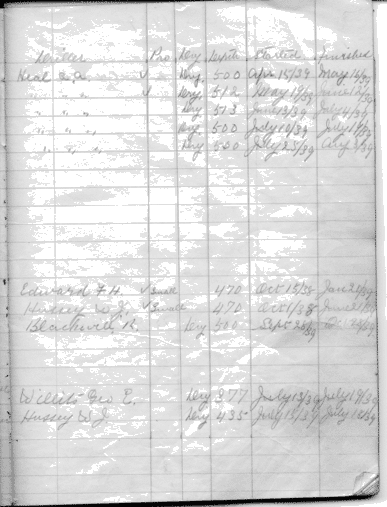 Driller Pro Dry Depth Started Finished
Neal ✓ Dry 500 Apr 15/39 May 16/39
" " ✓ Dry 512 May 19/39 June 12/39
" " " Dry 513 June 13/39 July 4/39
" " " Dry 500 July 10/39 July 19/39
" " " Dry 500 July 25/39 Aug 9/39
Edward F. H. ✓ Small 470 Oct 15/38 Jan 21/39
Hussey W. J. ✓ Small 470 Oct 1/38 June 21/39
R. Dry 500 Sept 25/39
Willits Geo E. Dry 377 July 13/39 July 19/39
Hussey W J. Dry 435 July 15/39 July